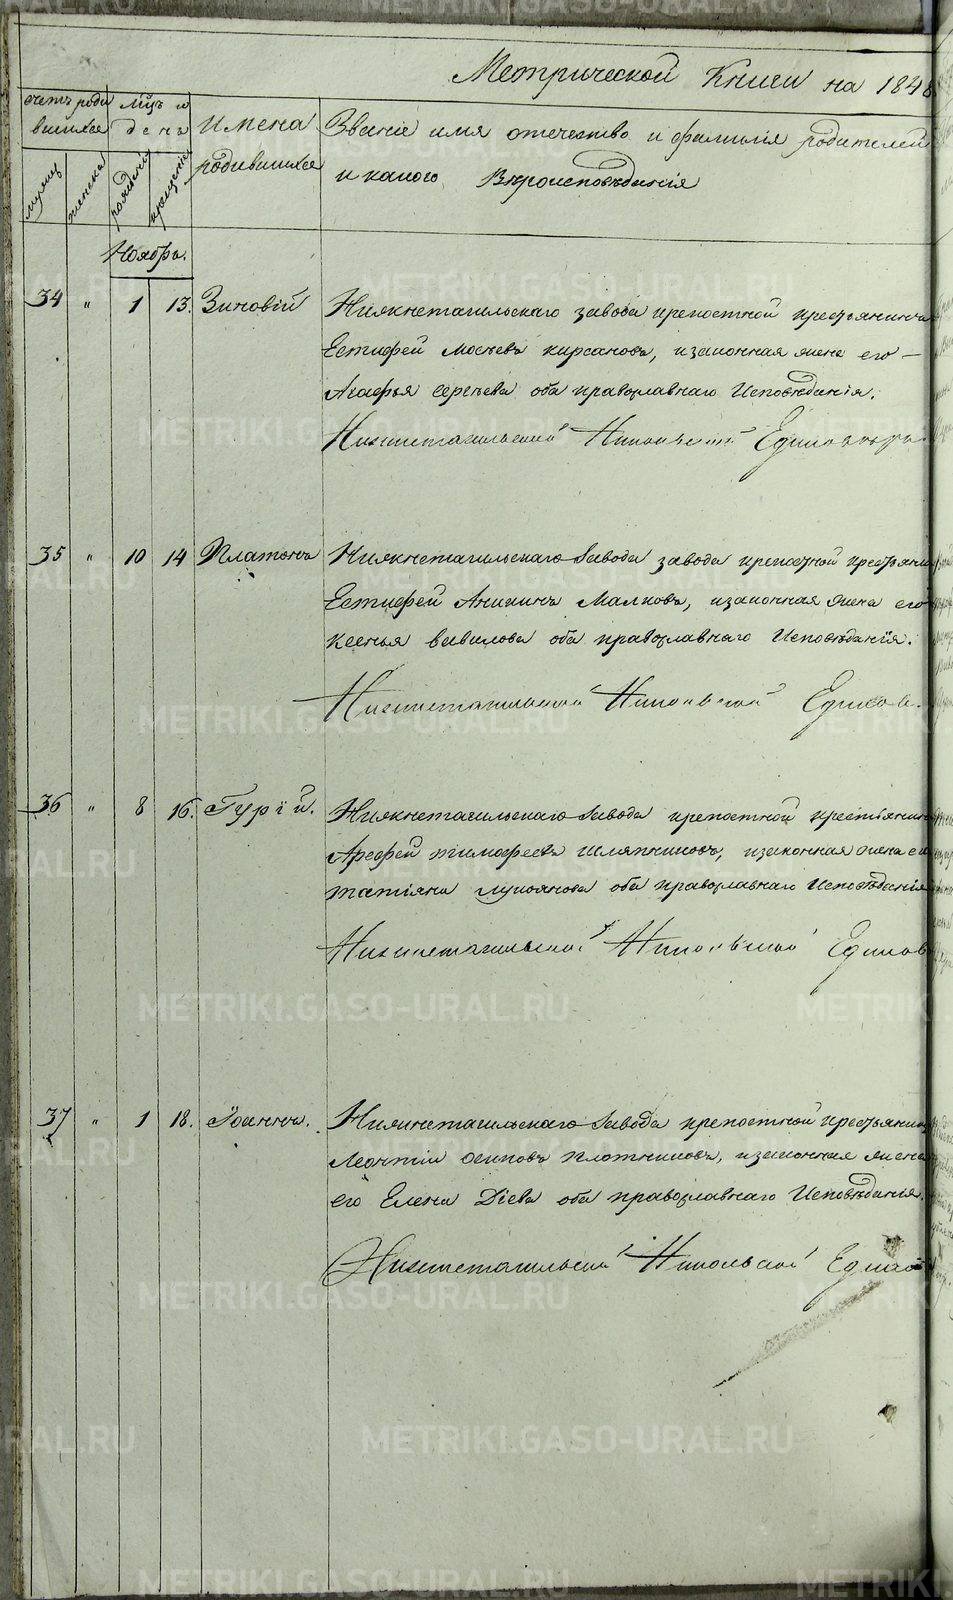 Метрической Книги на 184
счетъ роди
вшихся
мѣцъ и
день
имена
родившихся
Званіе имя отечество и фамилія родителей
и какого Вѣроисповѣданія
мужск
женска
рожденія
крещенія
Ноябрь.
34 " 1 13. Зиновій Нижнетагильскаго завода крепостной крестьянинъ
Естифей Мосѣевъ Кирсановъ, изаконная жена его
Агафья Сергѣева оба православнаго Исповѣданія.
Нижнетагильской Никольской Единовѣр
35 " 10 14 Платонъ Нижнетагильскаго Завода завода крепостной крестьяни
Естифей Аникинъ Малковъ, изаконная жена его
Ксенья вавилова оба православнаго Исповѣданія.
Нижнетагильской Никольской Единов
36 " 8 16. Гурій. Нижнетагильскаго Завода крепостной крестьянинъ
Арефей тимофеевъ Шляпниковъ, изаконная жена его
татіяна лукоянова оба православнаго Исповѣданія
Нижнетагильской Никольской Единов
37 " 1 18. Іоаннъ. Нижнетагильскаго Завода крепостной крестьянинъ
Леонтій осиповъ Плотниковъ, изаконная жена
его Елена Діева оба православнаго Исповѣданія.
Нижнетагильской Никольской Един
METRIKI.GASO-URAL.RU